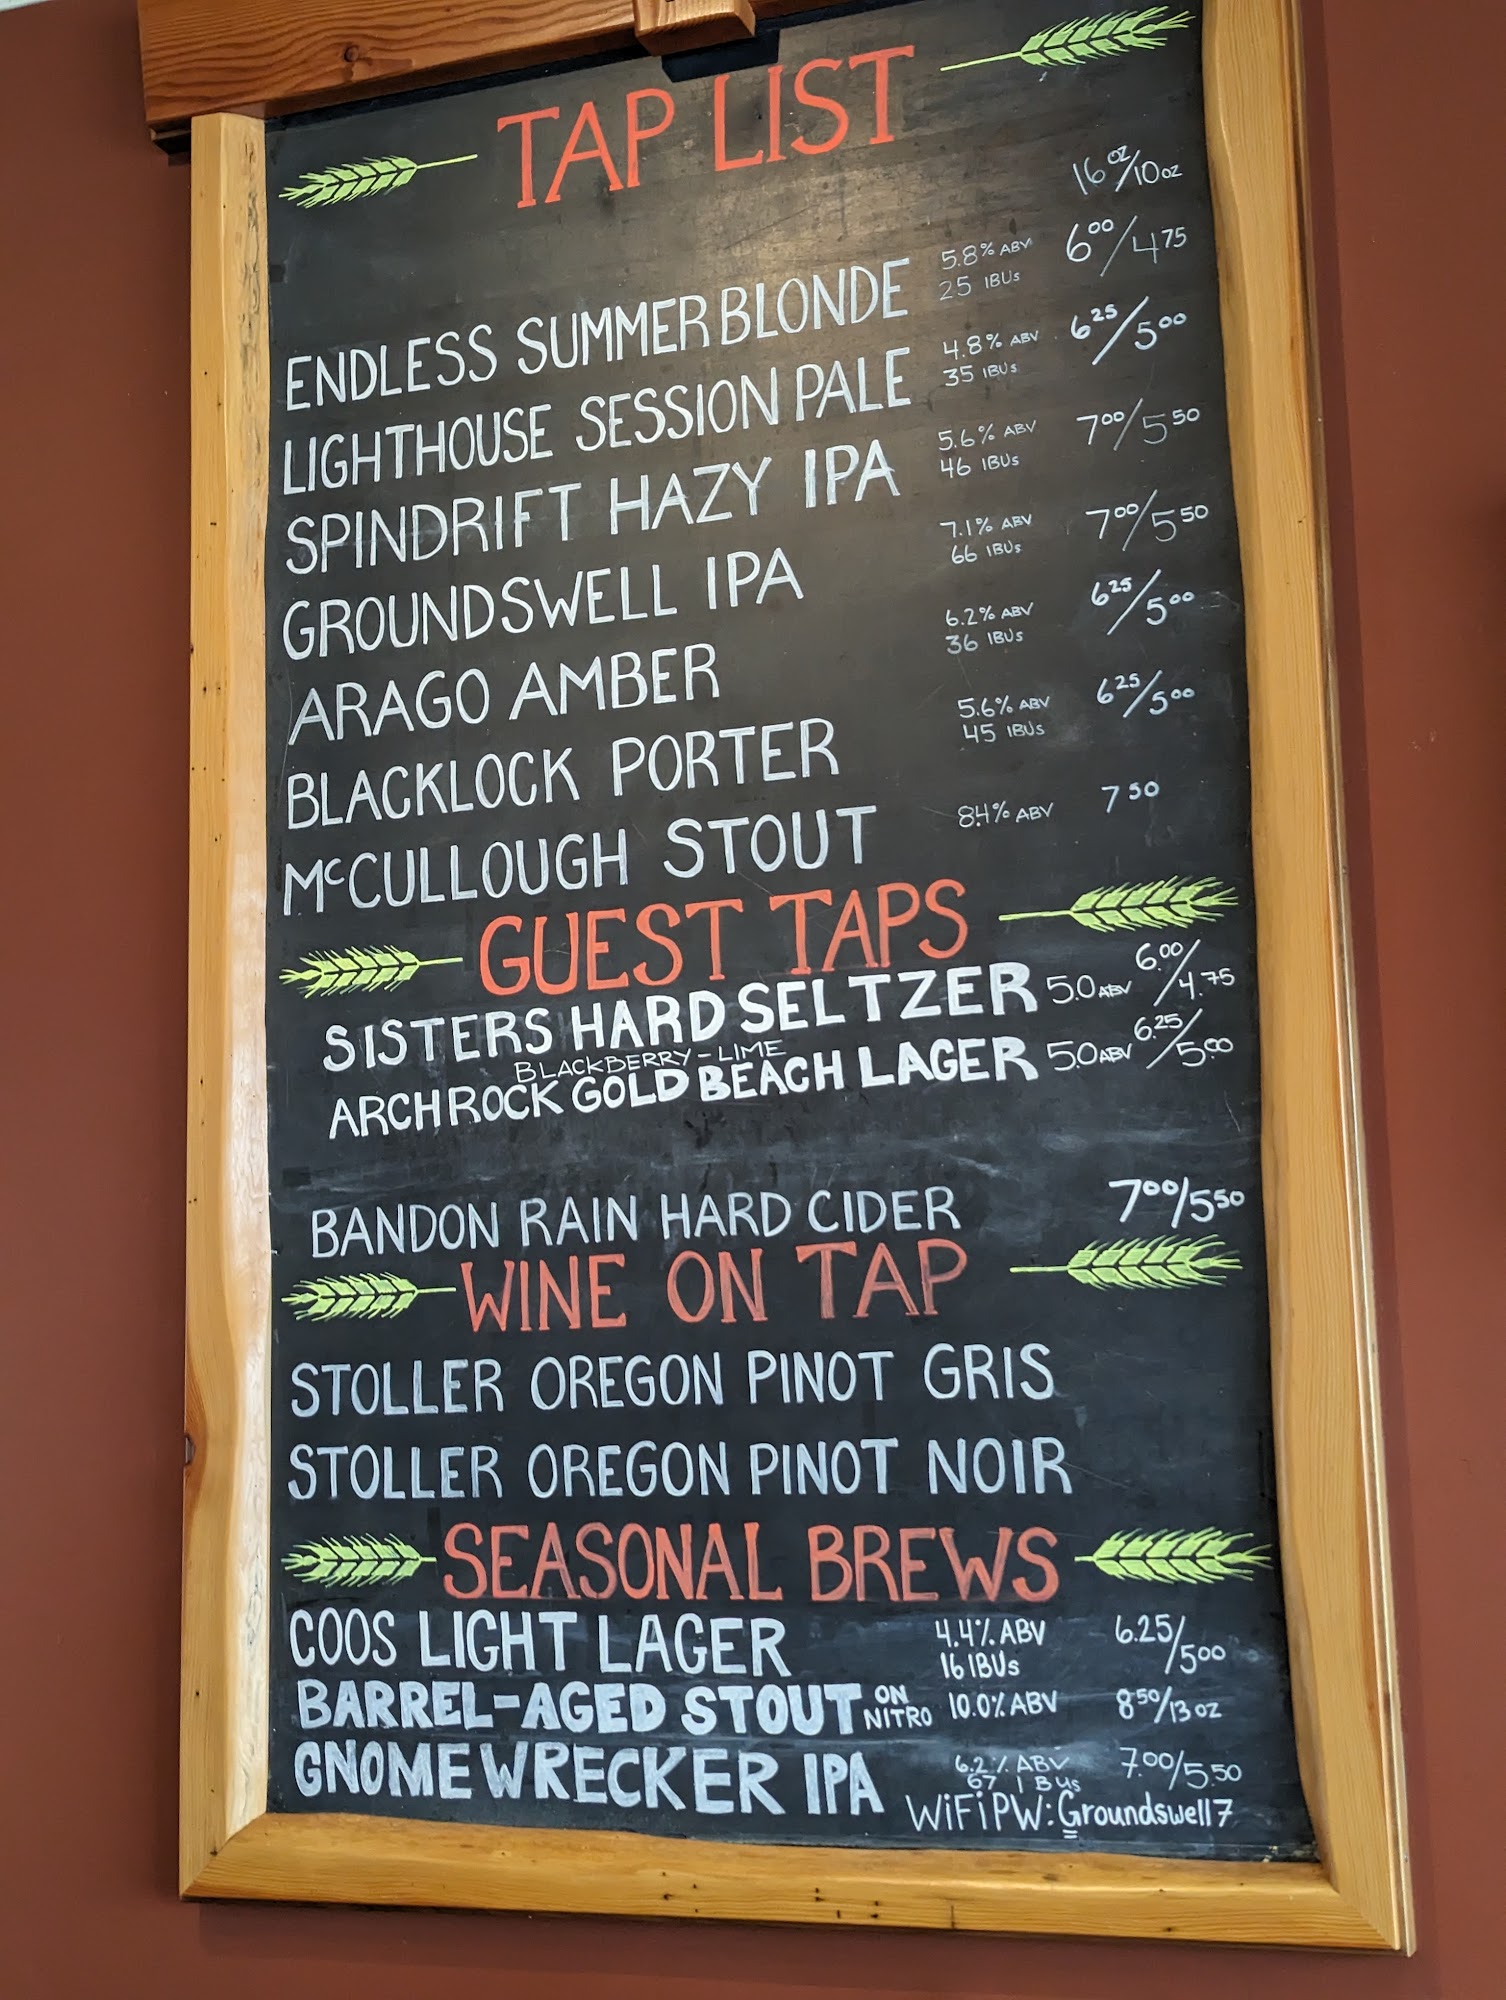 TAP LIST
16oz/10oz
ENDLESS SUMMER BLONDE 5.8% ABV 25 IBUs 6⁰⁰/4⁷⁵
LIGHTHOUSE SESSION PALE 4.8% ABV 35 IBUs 6²⁵/5⁰⁰
SPINDRIFT HAZY IPA 5.6% ABV 46 IBUs 7⁰⁰/5⁵⁰
GROUNDSWELL IPA 7.1% ABV 66 IBUs 7⁰⁰/5⁵⁰
ARAGO AMBER 6.2% ABV 36 IBUs 6²⁵/5⁰⁰
BLACKLOCK PORTER 5.6% ABV 45 IBUs 6²⁵/5⁰⁰
McCULLOUGH STOUT 8.4% ABV 7⁵⁰
GUEST TAPS
SISTERS HARD SELTZER 5.0 ABV 6.00/4.75
BLACKBERRY-LIME
ARCH ROCK GOLD BEACH LAGER 5.0 ABV 6.25/5.00
BANDON RAIN HARD CIDER 7⁰⁰/5⁵⁰
WINE ON TAP
STOLLER OREGON PINOT GRIS
STOLLER OREGON PINOT NOIR
SEASONAL BREWS
COOS LIGHT LAGER 4.4% ABV 16 IBUs 6.25/5⁰⁰
BARREL-AGED STOUT ON NITRO 10.0% ABV 8⁵⁰/13oz
GNOME WRECKER IPA 6.2% ABV 67 IBUs 7.00/5.50
WiFi PW: Groundswell7